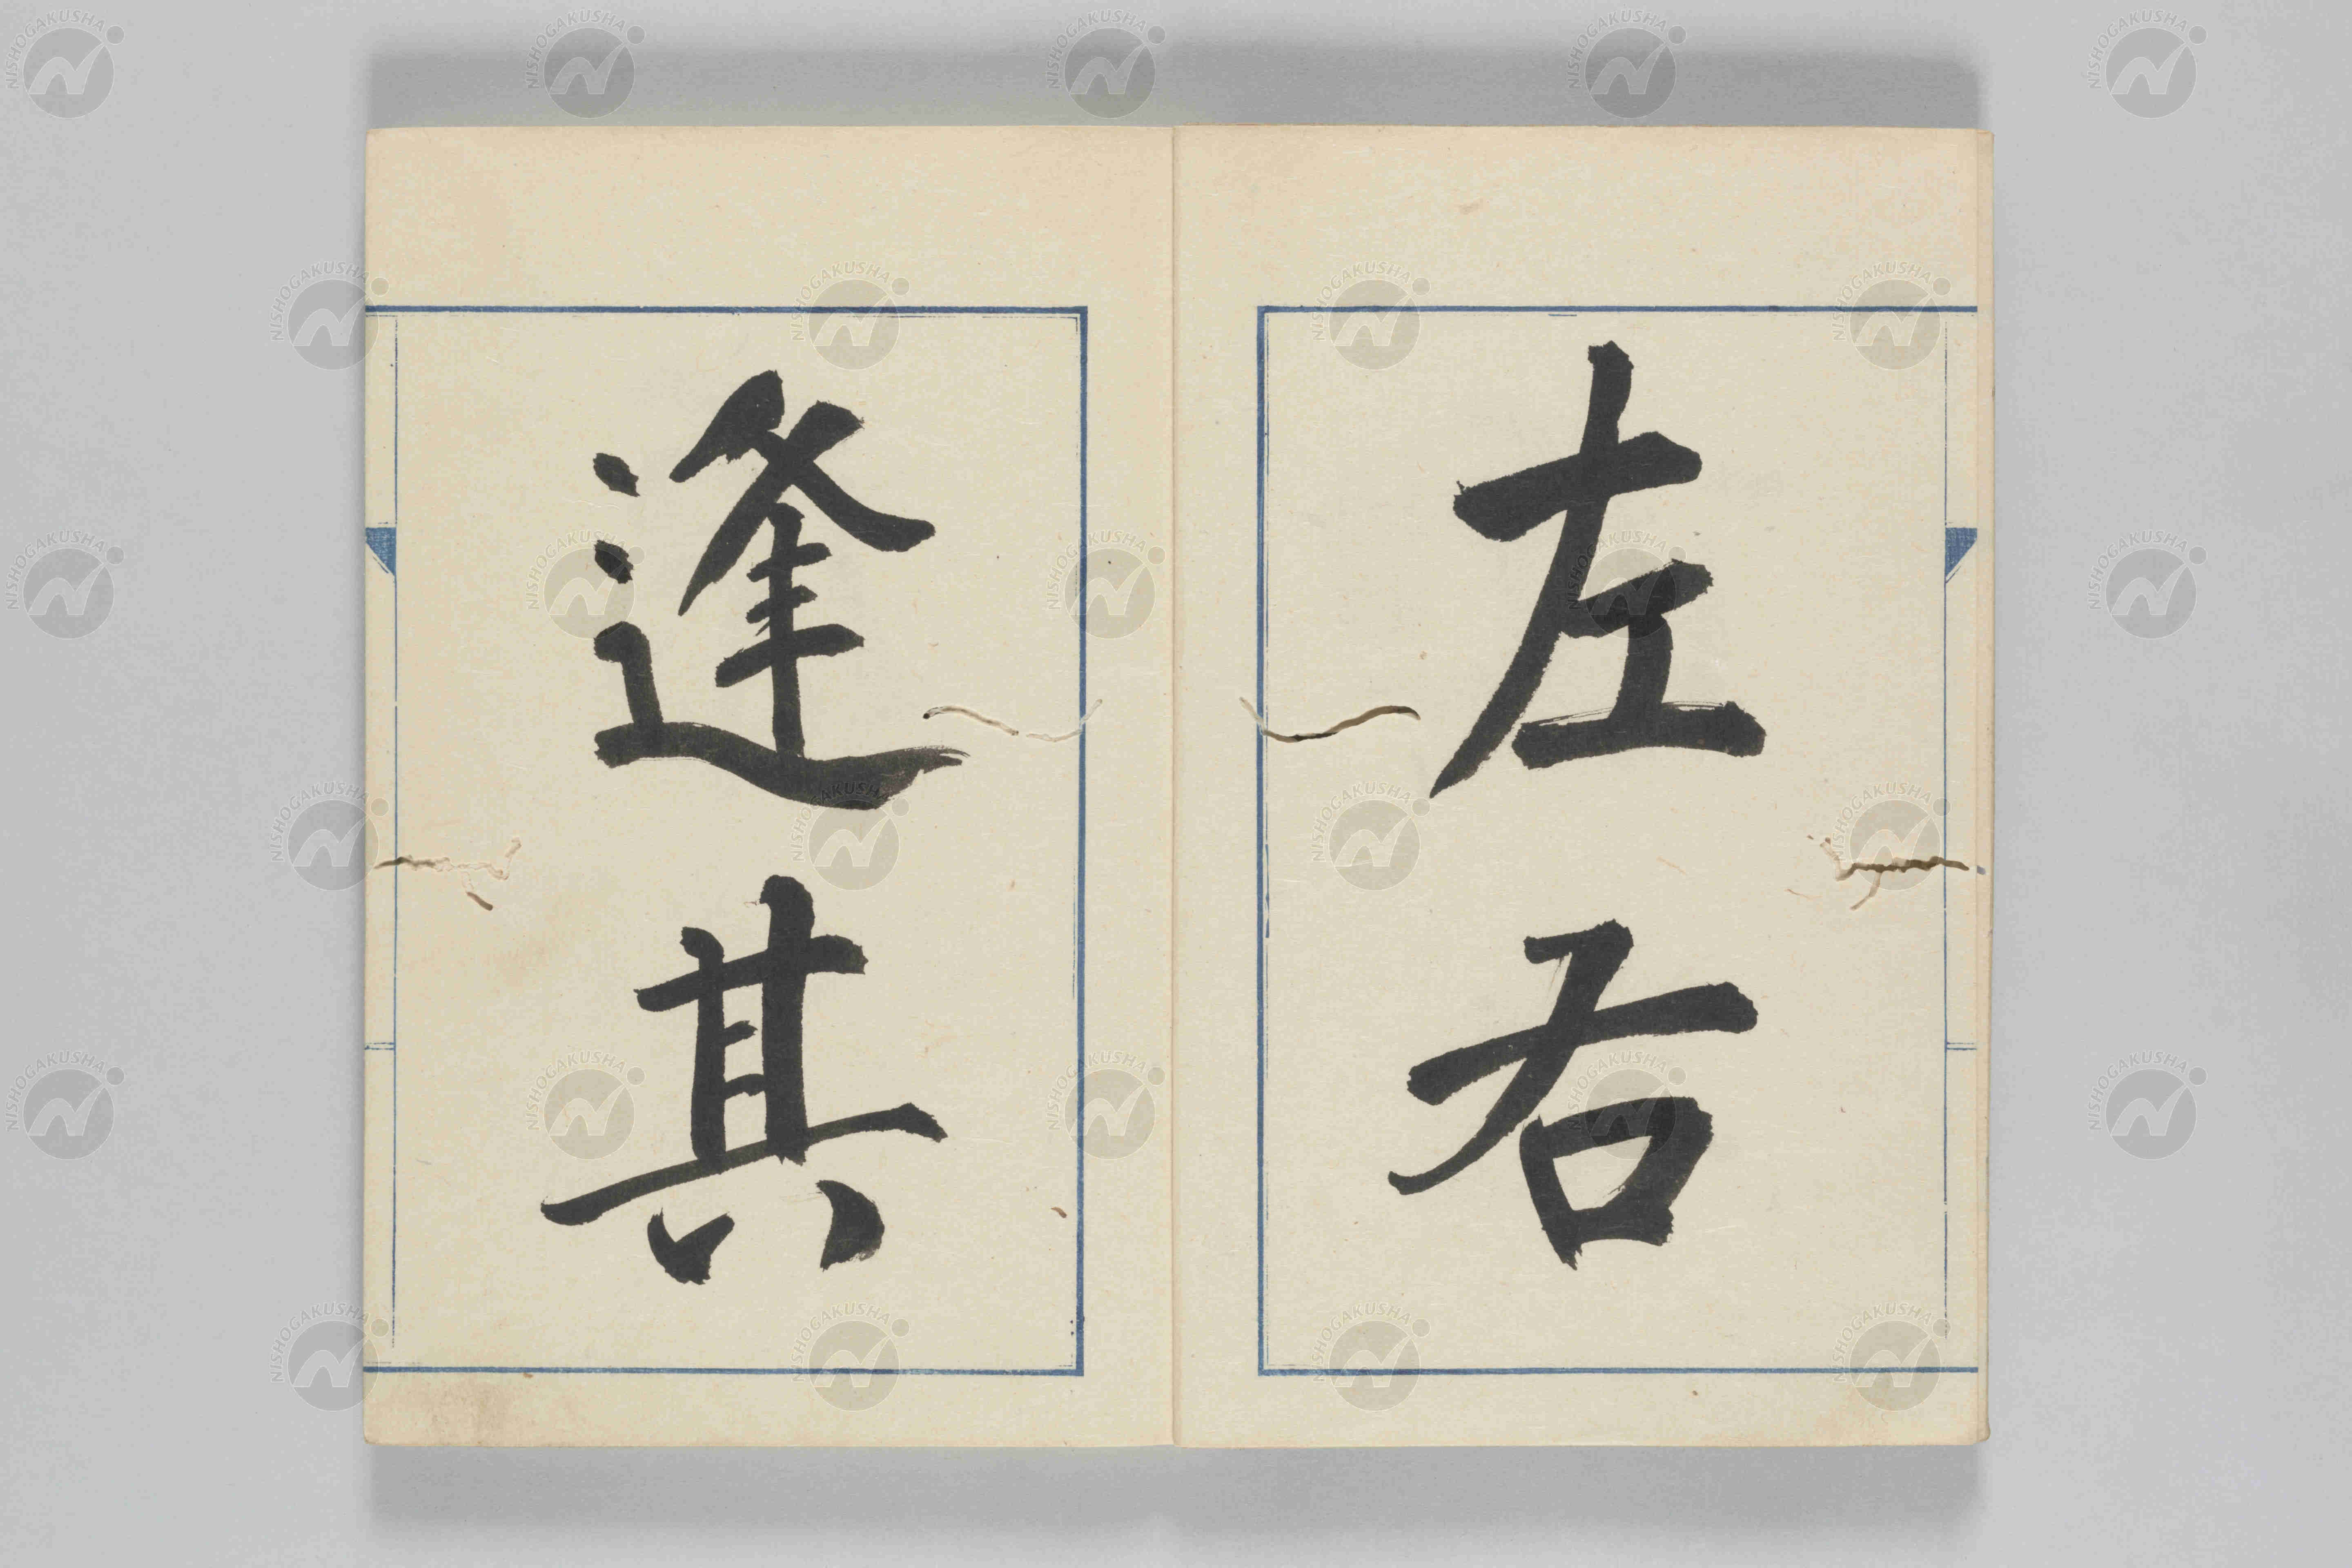 左右
逢其
NISHOGAKUSHA